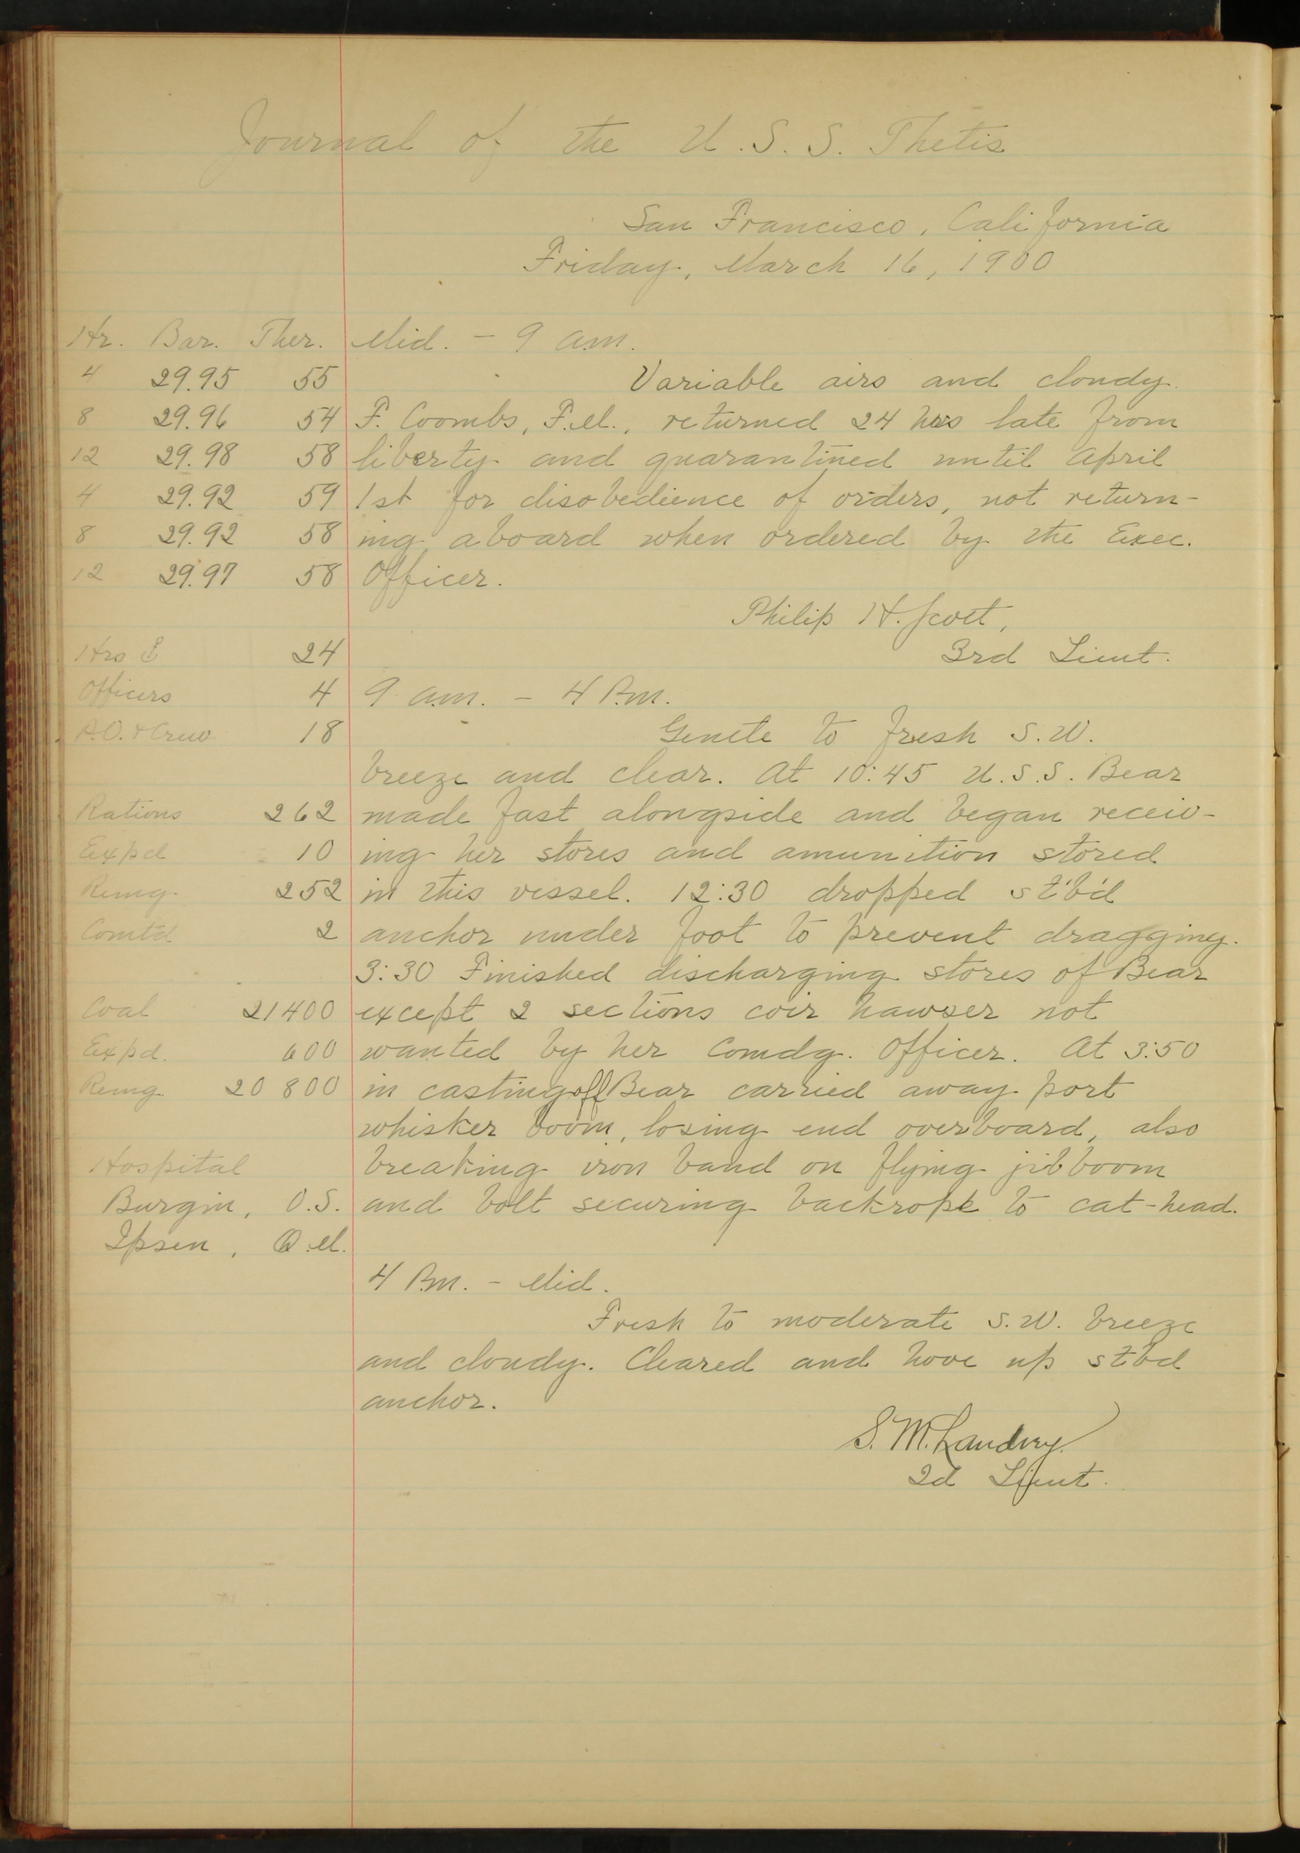 Journal of the U.S.S. Thetis
San Francisco, California
Friday, March 16, 1900
Hr. Bar. Ther. Mid. - 9 a.m.
4 29.95 55 Variable airs and cloudy.
8 29.96 54 F. Coombs, F.M., returned 24 hrs late from
12 29.98 58 liberty and quarantined until April
4 29.92 59 1st for disobedience of orders, not return-
8 29.92 58 ing aboard when ordered by the Exec.
12 29.97 58 Officer.
Philip H. Scott,
Hrs 24 3rd Lieut.
Officers 4 9 a.m. - 4 P.m.
P.O. & Crew 18 Gentle to fresh S.W.
breeze and clear. At 10:45 U.S.S. Bear
Rations 262 made fast alongside and began receiv-
Exp'd 10 ing her stores and amunition stored
Remg. 252 in this vessel. 12:30 dropped st'b'd
Comt'd 2 anchor under foot to prevent dragging.
3:30 Finished discharging stores of Bear
Coal 21400 except 2 sections coir hawser not
Exp'd. 600 wanted by her Comdg. Officer. At 3:50
Remg. 20 800 in casting off Bear carried away port
whisker boom, losing end overboard, also
Hospital breaking iron band on flying jib boom
Burgin, O.S. and bolt securing backrope to cat-head.
Ipsen, Q.M.
4 P.m. - Mid.
Fresh to moderate S.W. breeze
and cloudy. Cleared and hove up stbd
anchor.
S. M. Landrey.
2d Lieut.